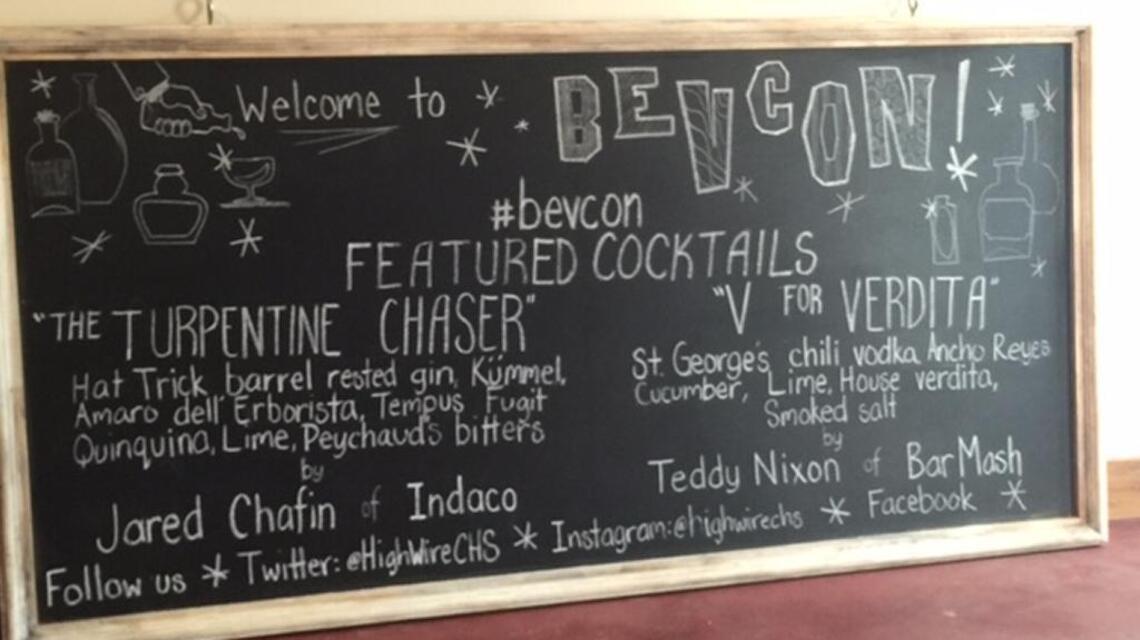 Welcome to BEVCON!
#bevcon
FEATURED COCKTAILS
"THE TURPENTINE CHASER"
Hat Trick barrel rested gin, Kümmel,
Amaro dell' Erborista, Tempus Fugit
Quinquina, Lime, Peychaud's bitters
by
Jared Chafin of Indaco
"V FOR VERDITA"
St. George's chili vodka Ancho Reyes
Cucumber, Lime, House verdita,
Smoked salt
by
Teddy Nixon of Bar Mash
Follow us * Twitter: @HighWireCHS * Instagram: @highwirechs * Facebook *